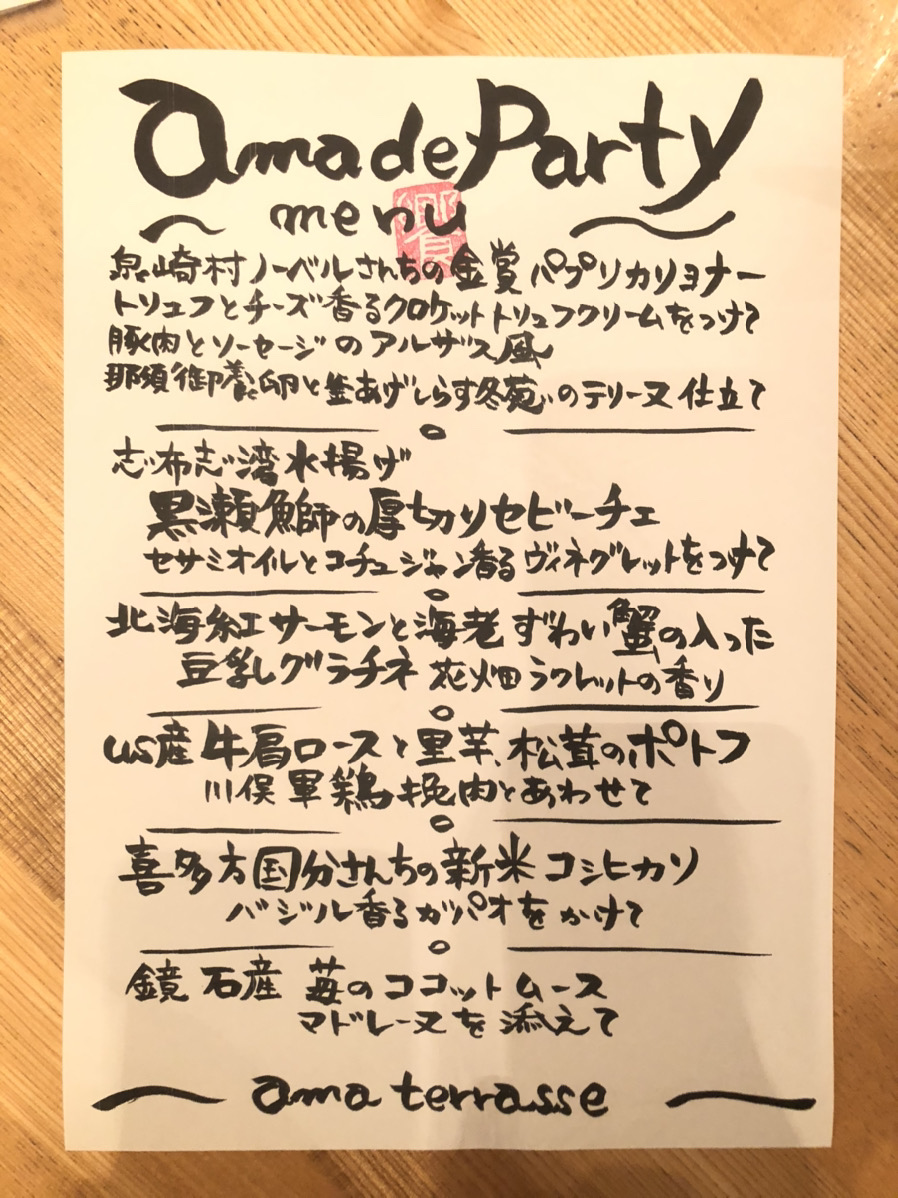 ama de Party
menu
饗
泉崎村ノーベルさんちの金賞パプリカリヨナー
トリュフとチーズ香るクロケットトリュフクリームをつけて
豚肉とソーセージのアルザス風
那須御養卵と釜あげしらす冬菀いのテリーヌ仕立て
志布志湾水揚げ
黒瀬鰤の厚切りセビーチェ
セサミオイルとコチュジャン香るヴィネグレットをつけて
北海紅サーモンと海老ずわい蟹の入った
豆乳グラチネ 花畑ラクレットの香り
US産牛肩ロースと里芋、松茸のポトフ
川俣軍鶏挽肉とあわせて
喜多方国分さんちの新米コシヒカリ
バジル香るガパオをかけて
鏡石産 苺のココットムース
マドレーヌを添えて
ama terrasse